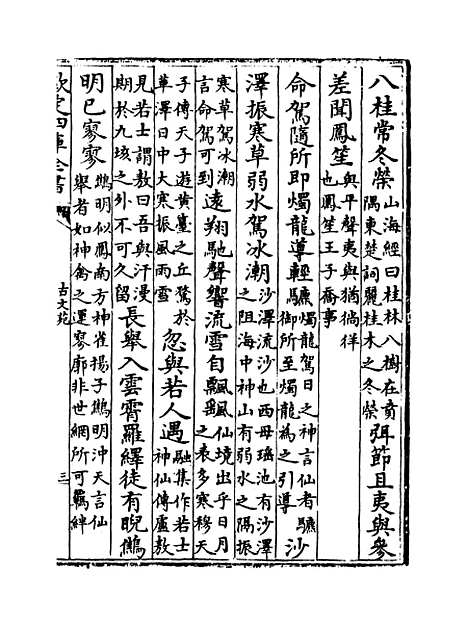 八桂常冬榮山海經曰桂林八樹在賁隅東楚詞麗桂木之冬榮弭節且夷與參
差聞鳳笙與平聲夷與猶徜徉也鳳笙王子喬事
命駕隨所即燭龍導輕驂燭龍駕日之神言仙者驂御所至燭龍為之引導沙
澤振寒草弱水駕冰潮沙澤流沙也西母瑶池有沙澤之阻海中神山有弱水之隔振
寒草駕冰潮言命駕可到遠翔馳聲響流雪自飄飖仙境出乎日月之表多寒穆天
子傳天子遊黄臺之丘獵於苹澤日中大寒振風雨雪忽與若人遇融集作若士神仙傳盧敖
見若士謂敖曰吾與汗漫期於九垓之外不可久留長舉入雲霄羅繹徒有睨鷦
明已寥寥鷦明似鳳南方神雀揚子鷦明沖天言仙舉者如神禽之運寥廓非世網所可羈絆
欽定四庫全書
古文苑
三